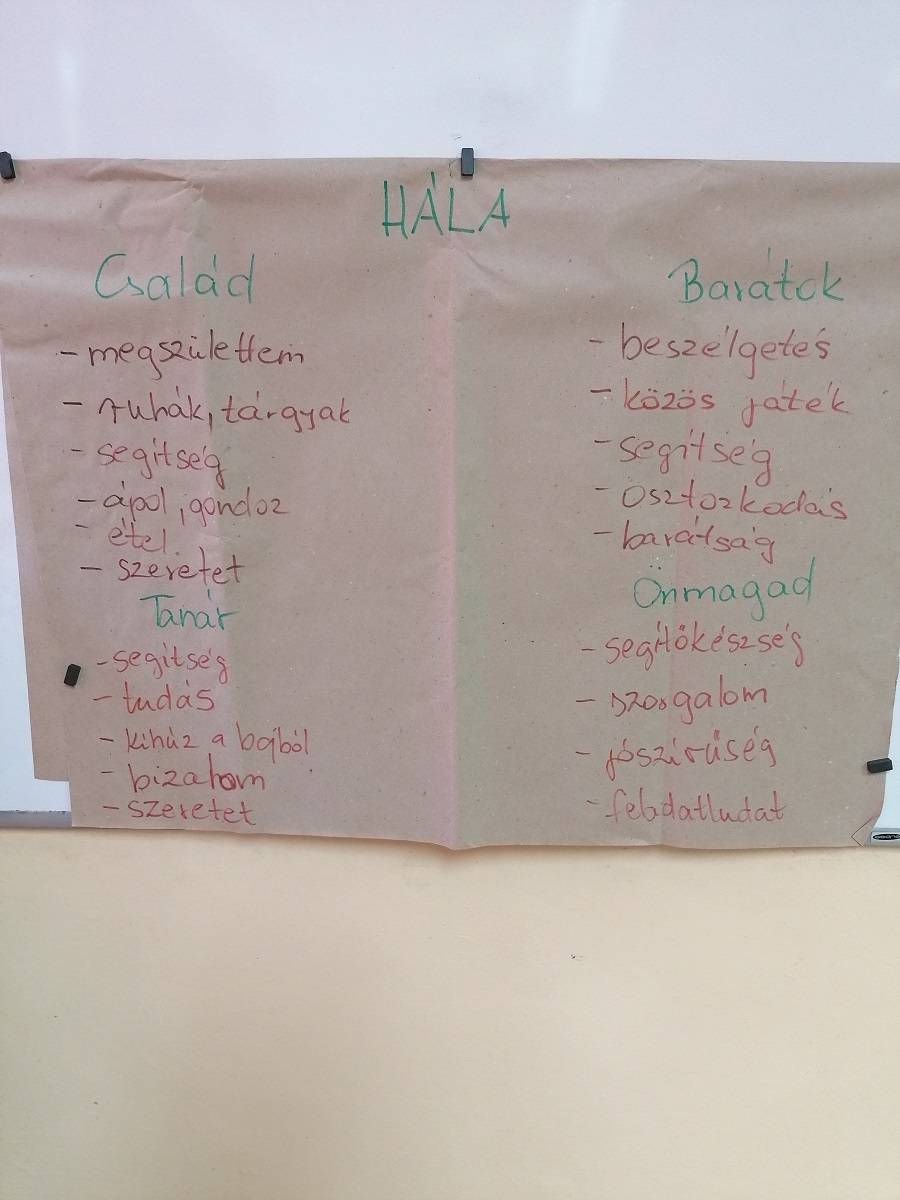 HÁLA
Család
- megszülettem
- ruhák, tárgyak
- segítség
- ápol, gondoz
- étel
- szeretet
Tanár
- segítség
- tudás
- kihúz a bajból
- bizalom
- szeretet
Barátok
- beszélgetés
- közös játék
- segítség
- osztozkodás
- barátság
Önmagad
- segítőkészség
- szorgalom
- jószívűség
- feladattudat